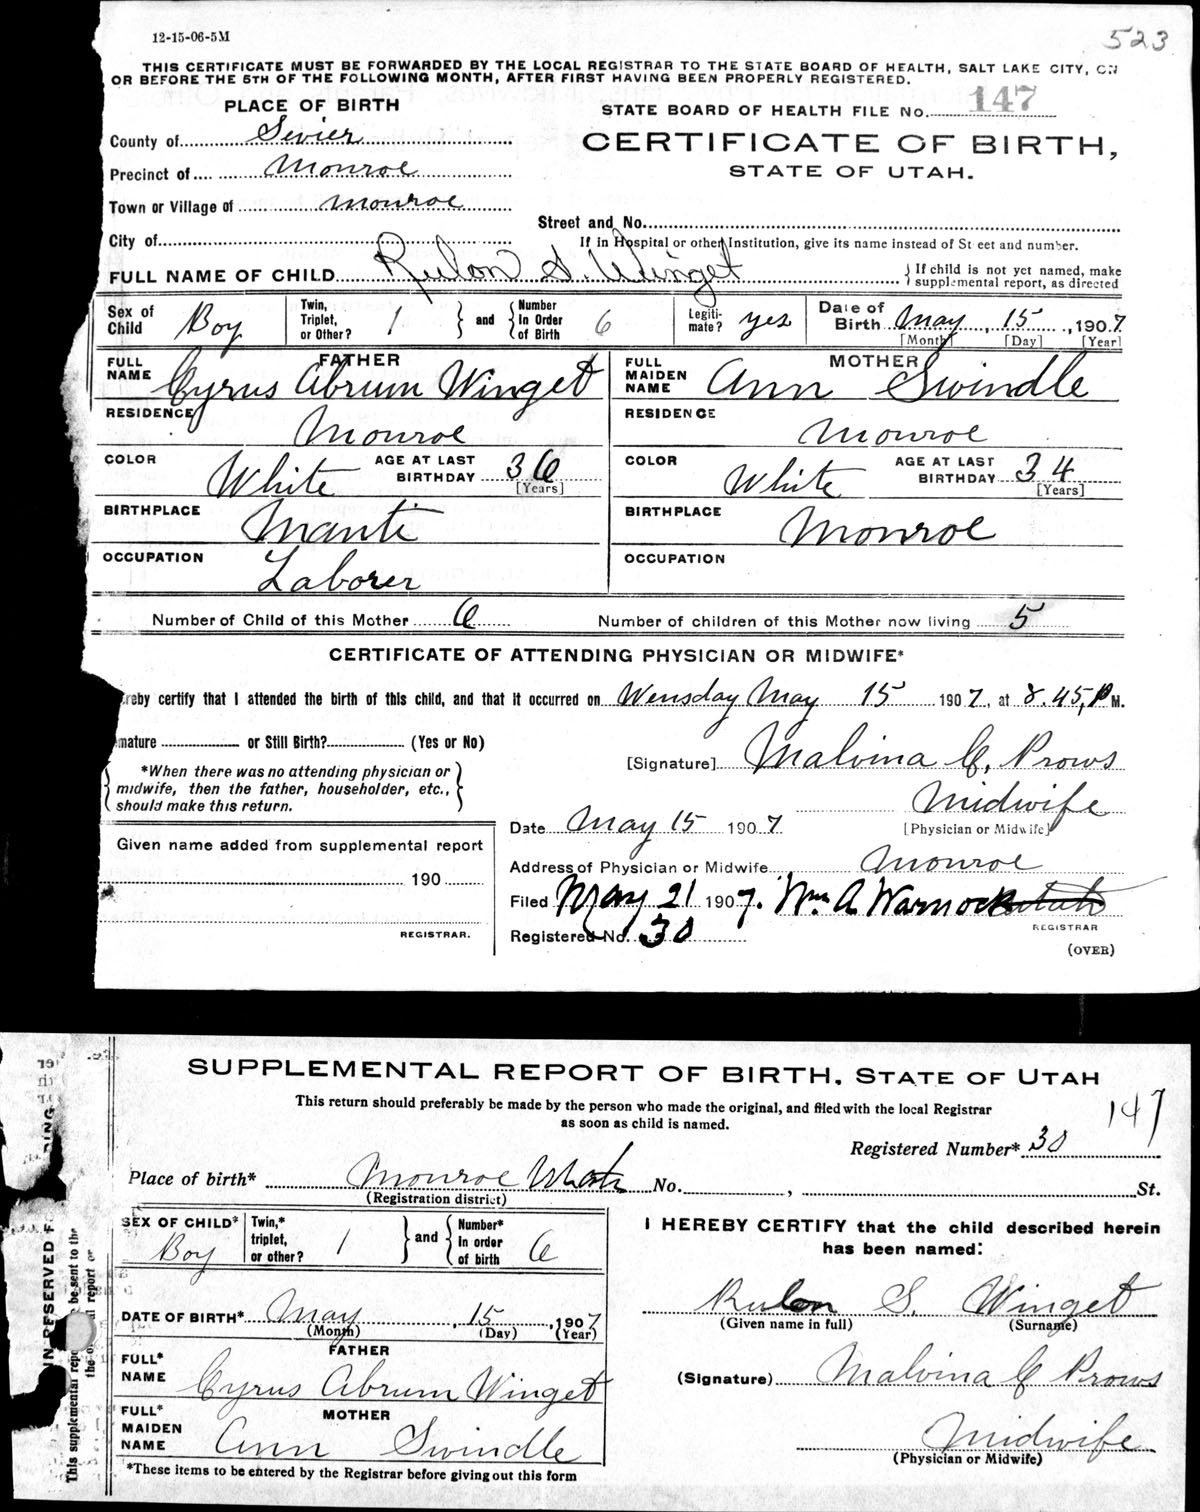 12-15-06-5M
523
THIS CERTIFICATE MUST BE FORWARDED BY THE LOCAL REGISTRAR TO THE STATE BOARD OF HEALTH, SALT LAKE CITY, ON
OR BEFORE THE 5TH OF THE FOLLOWING MONTH, AFTER FIRST HAVING BEEN PROPERLY REGISTERED.
PLACE OF BIRTH
STATE BOARD OF HEALTH FILE No. 147
County of Sevier
CERTIFICATE OF BIRTH,
STATE OF UTAH.
Precinct of Monroe
Town or Village of Monroe
Street and No.
City of
If in Hospital or other Institution, give its name instead of Street and number.
FULL NAME OF CHILD Rulon S. Winget
If child is not yet named, make
supplemental report, as directed
Sex of Child Boy
Twin, Triplet, or Other? 1 and Number In Order of Birth 6
Legitimate? yes
Date of Birth May, 15, 1907
[Month] [Day] [Year]
FATHER
FULL NAME Cyrus Abrum Winget
MOTHER
FULL MAIDEN NAME Ann Swindle
RESIDENCE Monroe
RESIDENCE Monroe
COLOR White AGE AT LAST BIRTHDAY 36 [Years]
COLOR White AGE AT LAST BIRTHDAY 34 [Years]
BIRTHPLACE Manti
BIRTHPLACE Monroe
OCCUPATION Laborer
OCCUPATION
Number of Child of this Mother 6 Number of children of this Mother now living 5
CERTIFICATE OF ATTENDING PHYSICIAN OR MIDWIFE*
reby certify that I attended the birth of this child, and that it occurred on Wensday May 15 1907, at 8.45, P M.
mature or Still Birth? (Yes or No)
[Signature] Malvina C. Prows
*When there was no attending physician or
midwife, then the father, householder, etc.,
should make this return.
Midwife
[Physician or Midwife]
Date May 15 1907
Given name added from supplemental report
190
REGISTRAR.
Address of Physician or Midwife Monroe
Filed May 21 1907. Wm A Warnock Utah
REGISTRAR
Registered No. 30
(OVER)
SUPPLEMENTAL REPORT OF BIRTH, STATE OF UTAH
This return should preferably be made by the person who made the original, and filed with the local Registrar
as soon as child is named.
147
Registered Number* 30
Place of birth* Monroe Utah No. , St.
(Registration district)
SEX OF CHILD* Boy
Twin,* triplet, or other? 1 and Number* In order of birth 6
I HEREBY CERTIFY that the child described herein
has been named:
Rulon S. Winget
(Given name in full) (Surname)
DATE OF BIRTH* May, 15, 1907
(Month) (Day) (Year)
FATHER
FULL* NAME Cyrus Abrum Winget
(Signature) Malvina C Prows
MOTHER
FULL* MAIDEN NAME Ann Swindle
Midwife
(Physician or Midwife)
*These items to be entered by the Registrar before giving out this form
IN RESERVED
This supplemental
be sent to the